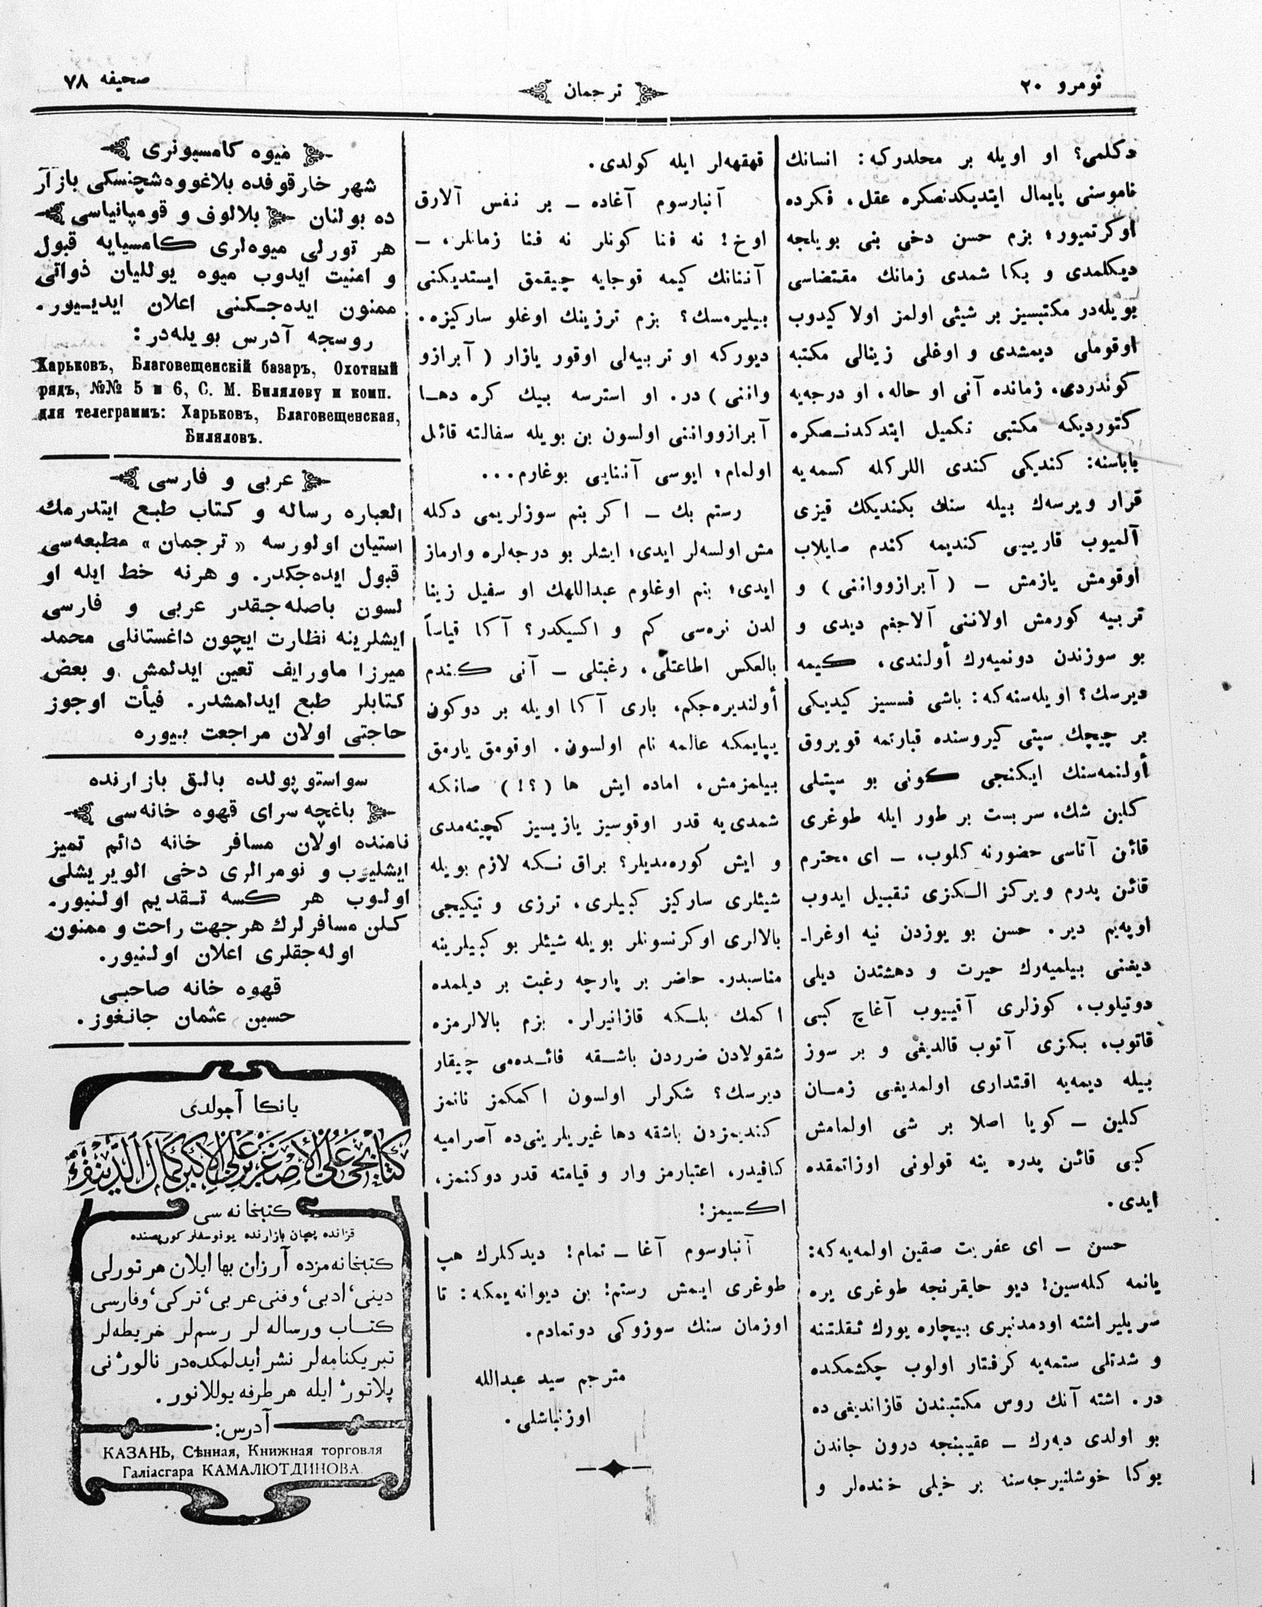 نومرو ۲۰
ترجمان
صحیفه ۷۸
دكلمی؟ او اویله بر محلدركه: انسانك
ناموسنی پایمال ایتدیكدنصكره عقل، فكرده
اوكرتمیور؛ بزم حسن دخی بنی بویلجه
دیكلمدی و بكا شمدی زمانك مقتضاسی
بویله‌در مكتبسیز بر شیئی اولمز اولا كیدوب
اوقوملی دیمشدی و اوغلی زینالی مكتبه
كوندردی. زمانده آنی او حاله، او درجه‌یه
كتوردیكه مكتبی تكمیل ایتدكدنصكره
باباسنه: كندیكی كندی اللركله كسمه‌یه
قرار ویرسه‌ك بیله سنك بكندیكك قیزی
آلمیوب قاریبی كندیمه كندم صایلاب
اوقومش یازمش ــ (آبرازوواننی) و
تربیه كورمش اولاننی آلاجغم دیدی و
بو سوزندن دونمیه‌رك أولندی. كیمه
دیرسك؟ اویله‌سنه‌كه: باشی فسسیز كیدیكی
بر چیچك سپتی كیروسنده قبارتمه قویروق
أولنمه‌سنك ایكنجی كونی بو سپتلی
كلین شك، سربست بر طور ایله طوغری
قائن آتاسی حضورنه كلوب، ــ ای محترم
قائن پدرم ویركز الكزی تقبیل ایدوب
اوپه‌یم دیر. حسن بو یوزدن نیه اوغرا-
دیغنی بیلمیه‌رك حیرت و دهشتدن دیلی
دوتیلوب، كوزلری آقییوب آغاج كبی
قاتوب، بكزی آتوب قالدیغی و بر سوز
بیله دیمه‌یه اقتداری اولمدیغی زمان
كلین ــ كویا اصلا بر شی اولمامش
كبی قائن پدره ینه قولونی اوزاتمقده
ایدی.
حسن ــ ای عفریت صقین اولمه‌یه‌كه:
یانمه كله‌سین! دیو حایقرنجه طوغری یره
سریلیر اشته اودمدنبری بیچاره یورك ثقلتنه
و شدتلی ستمه‌یه كرفتار اولوب چكشمكده
در. اشته آنك روس مكتبندن قازاندیغی‌ده
بو اولدی دیه‌رك ــ عقیبنجه درون جاندن
یوكا خوشلنیرجه‌سنه بر خیلی خنده‌لر و
قهقهه‌لر ایله كولدی.
آنبارسوم آغاده ــ بر نفس آلارق
اوخ! نه فنا كونلر نه فنا زمانلر، ــ
آننانك كیمه قوجایه چیقمق ایستدیكنی
بیلیرمسك؟ بزم ترزینك اوغلو ساركیزه.
دیوركه او تربیه‌لی اوقور یازار (آبرازو
واننی) در. او استرسه بیك كره دها
آبرازوواننی اولسون بن بویله سفالته قائل
اولمام؛ ایوسی آننایی بوغارم...
رستم بك ــ اكر بنم سوزلریمی دكله
مش اولسه‌لر ایدی؛ ایشلر بو درجه‌لره وارماز
ایدی؛ بنم اوغلوم عبداللهك او سفیل زینا
لدن نره‌سی كم و اكسیكدر؟ آكا قیاساً
بالعكس اطاعتلی، رغبتلی ــ آنی كندم
أولندیره‌جكم، باری آكا اویله بر دوكون
یپایمكه عالمه نام اولسون. اوقومق یازمق
بیلمزمش، اماده ایش ها (؟!) صانكه
شمدی‌یه قدر اوقوسیز یازیسیز كچینه‌مدی
و ایش كوره‌مدیلر؟ براق نكه لازم بویله
شیئلری ساركیز كبیلری، ترزی و تیكیجی
بالالری اوكرنسونلر بویله شیئلر بو كبیلرینه
مناسبدر. حاضر بر پارچه رغبت بر دیلمده
اكمك بلكه قازانیرلر. بزم بالالرمزه
شقولادن ضرردن باشقه فائده‌می چیقار
دیرسك؟ شكرلر اولسون اكمكمز نانمز
كندیمزدن باشقه دها غیریلرینی‌ده آصرامیه
كافیدر، اعتبارمز وار و قیامته قدر دوكنمز،
اكسیمز!
آنبارسوم آغا ــ تمام! دیدكلرك هپ
طوغری ایمش رستم! بن دیوانه‌یمكه: تا
اوزمان سنك سوزوكی دوتمادم.
مترجم سید عبدالله
اوزنباشلی.
میوه كامسیونری
شهر خارقوفده بلاغووه‌شچنسكی بازار
ده بولنان بلالوف و قومپانیاسی
هر تورلی میوه‌لری كامسیایه قبول
و امنیت ایدوب میوه یوللیان ذواتی
ممنون ایده‌جكنی اعلان ایدییور.
روسجه آدرس بویله‌در:
Харьковъ, Благовещенскій базаръ, Охотный
рядъ, №№ 5 и 6, С. М. Билялову и комп.
для телеграммъ: Харьковъ, Благовещенская,
Биляловъ.
عربی و فارسی
العباره رساله و كتاب طبع ایتدرمك
استیان اولورسه «ترجمان» مطبعه‌سی
قبول ایده‌جكدر. و هرنه خط ایله او
لسون باصله‌جقدر عربی و فارسی
ایشلرینه نظارت ایچون داغستانلی محمد
میرزا ماورایف تعین ایدلمش و بعض
كتابلر طبع ایدلمشدر. فیأت اوجوز
حاجتی اولان مراجعت بیوره
سواستوپولده بالق بازارنده
باغچه سرای قهوه خانه‌سی
نامنده اولان مسافر خانه دائم تمیز
ایشلیوب و نومرالری دخی الویریشلی
اولوب هر كسه تقدیم اولنیور.
كلن مسافرلرك هر جهت راحت و ممنون
اوله‌جقلری اعلان اولنیور.
قهوه خانه صاحبی
حسین عثمان جانغوز.
یانكا آچولدی
كتابچی علی الاصغر بن علی الاكبر كمال الدینف
كتبخانه سی
قزانده پچان بازارنده یونوسفلر كورپصنده
كتبخانه‌مزده آرزان بها ایلان هر تورلی
دینی، ادبی، وفنی عربی، تركی، وفارسی
كتاب ورساله لر رسم‌لر خریطه‌لر
تبریكنامه‌لر نشر ایدلمكده‌در نالوژنی
پلاتوژ ایله هر طرفه یوللانور.
آدرس:
КАЗАНЬ, Сѣнная, Книжная торговля
Галіасгара КАМАЛЮТДИНОВА